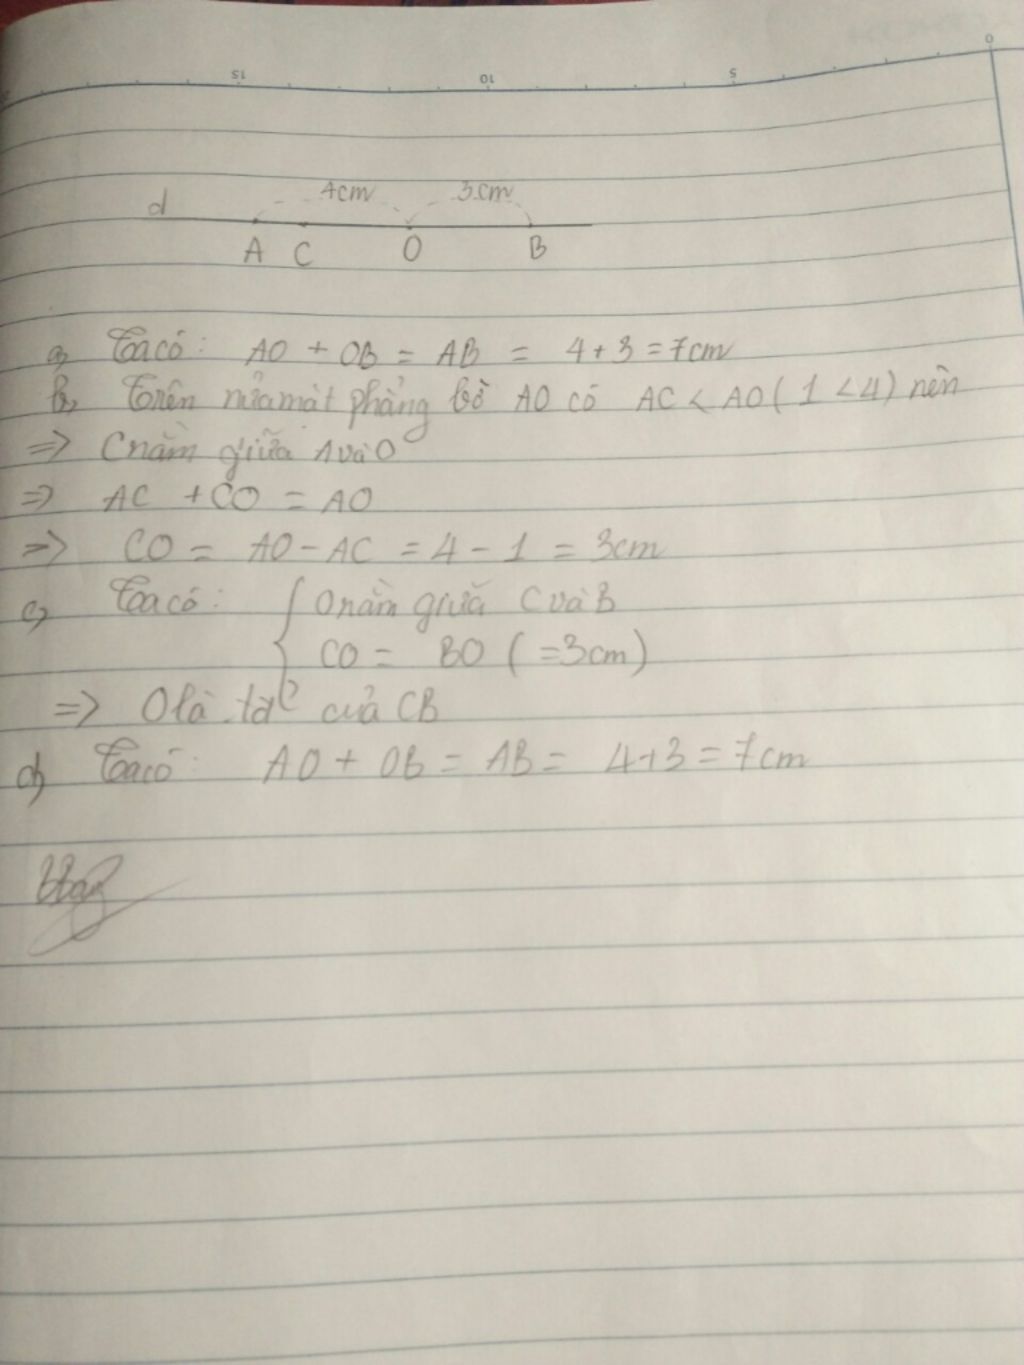 0 5 10 15
d 4cm 3cm
A C O B
a, Ta có: AO + OB = AB = 4+3 = 7cm
b, Trên nửa mặt phẳng bờ AO có AC < AO (1 < 4) nên
=> C nằm giữa A và O
=> AC + CO = AO
=> CO = AO - AC = 4 - 1 = 3cm
c, Ta có: { O nằm giữa C và B
CO = BO (=3cm)
=> O là tđ của CB
d, Ta có: AO + OB = AB = 4+3 = 7cm